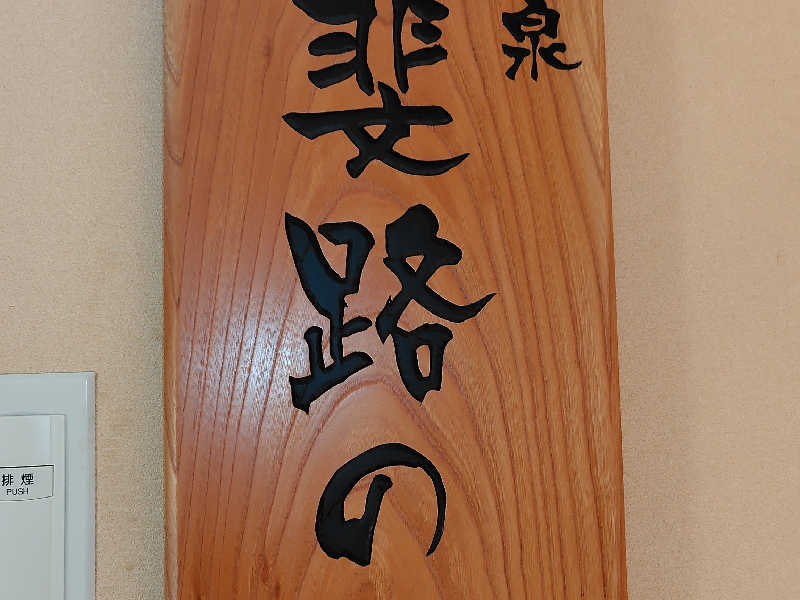 泉
斐路の
排煙
PUSH